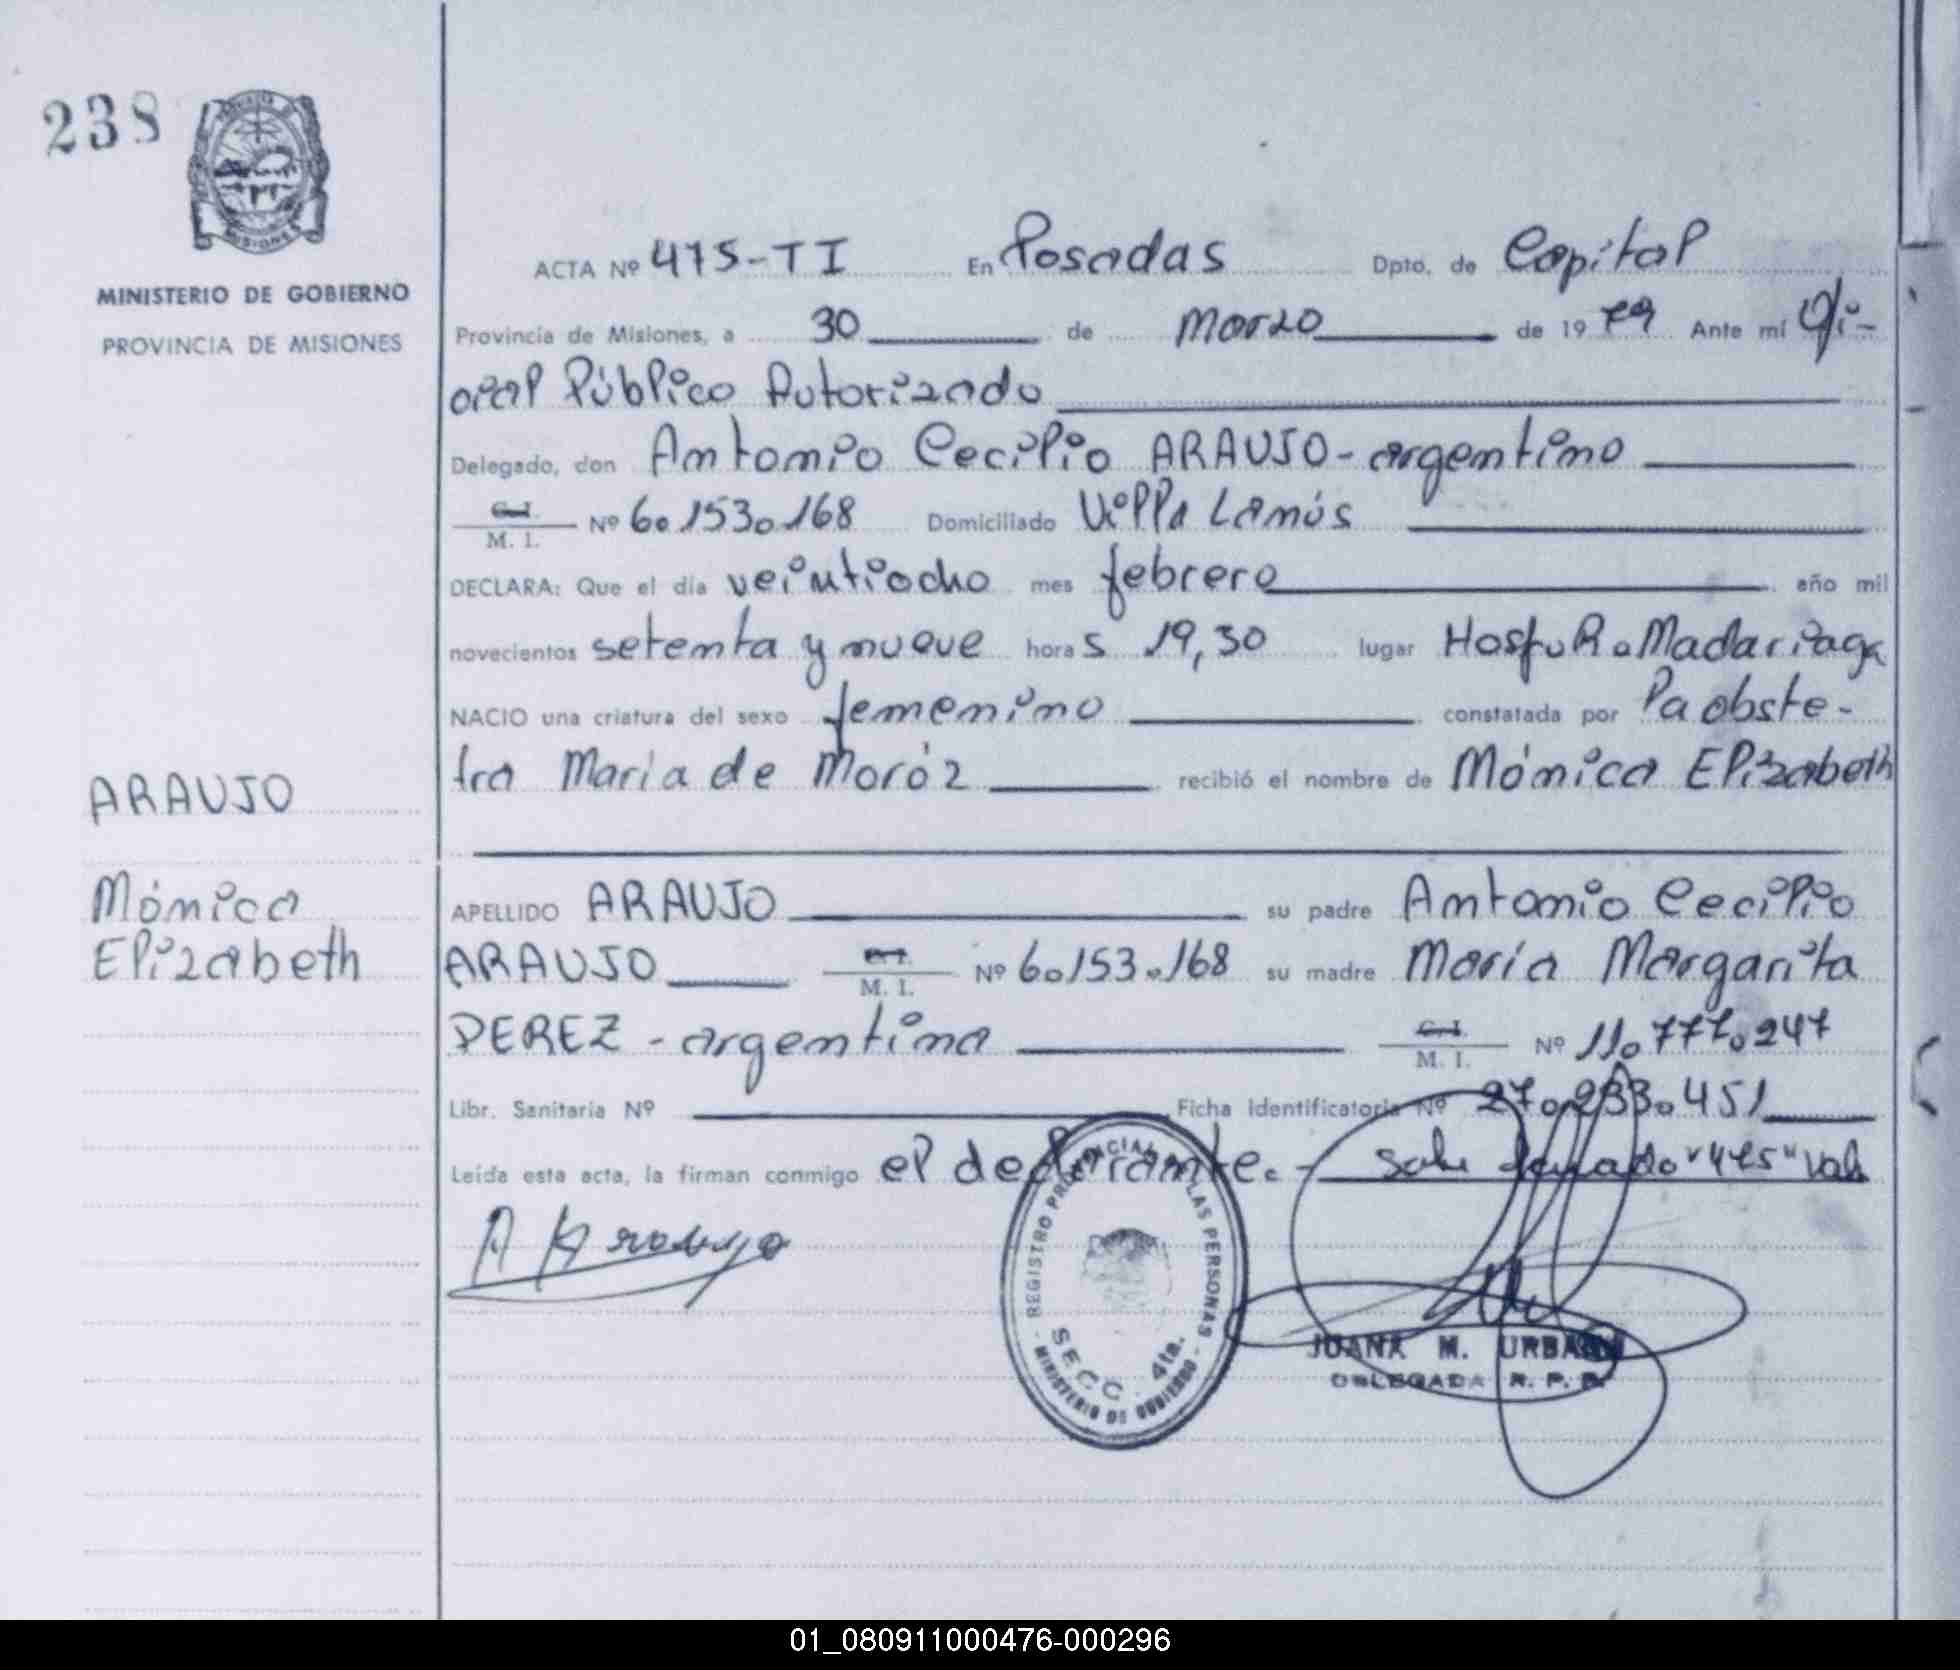 238
MISIONES
MINISTERIO DE GOBIERNO
PROVINCIA DE MISIONES
ACTA Nº 475-TI En Posadas Dpto. de Capital
Provincia de Misiones, a 30 de Marzo de 1979 Ante mí Ofi-
cial Público Autorizado
Delegado, don Antonio Cecilio ARAUJO - argentino
C. I.
M. I. Nº 6.153.168 Domiciliado Villa Lanús
DECLARA: Que el día veintiocho mes febrero año mil
novecientos setenta y nueve hora s 19,30 lugar Hosp. R. Madariaga
NACIO una criatura del sexo femenino constatada por la obste-
tra María de Moróz recibió el nombre de Mónica Elizabeth
ARAUJO
Mónica
Elizabeth
APELLIDO ARAUJO su padre Antonio Cecilio
ARAUJO M. I. Nº 6.153.168 su madre María Margarita
PEREZ - argentina C. I.
M. I. Nº 11.777.247
Libr. Sanitaria Nº Ficha Identificatoria Nº 27.233.451
Leída esta acta, la firman conmigo el declarante. - "475" Vale
A Araujo
REGISTRO PROVINCIAL DE LAS PERSONAS
SECC. 4ta.
MINISTERIO DE GOBIERNO
JUANA M.
DELEGADA R. P. P.
01_080911000476-000296